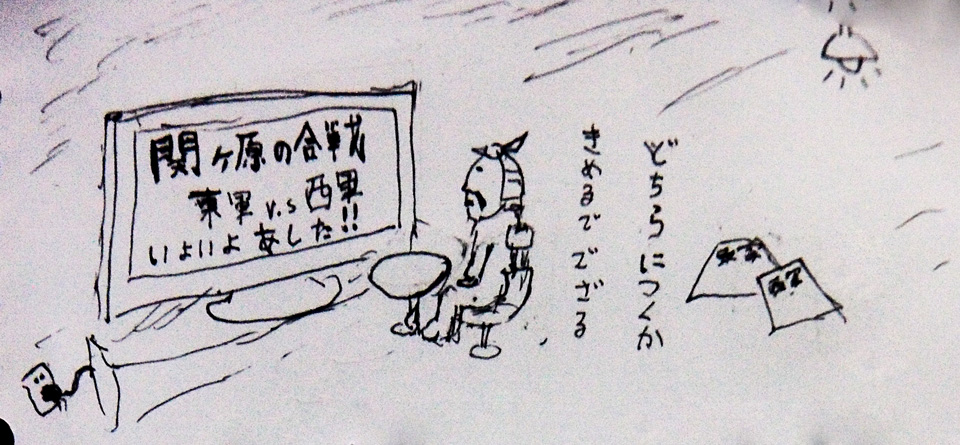 関ヶ原の合戦
東軍 v.s 西軍
いよいよあした!!
どちらにつくか
きめるでござる